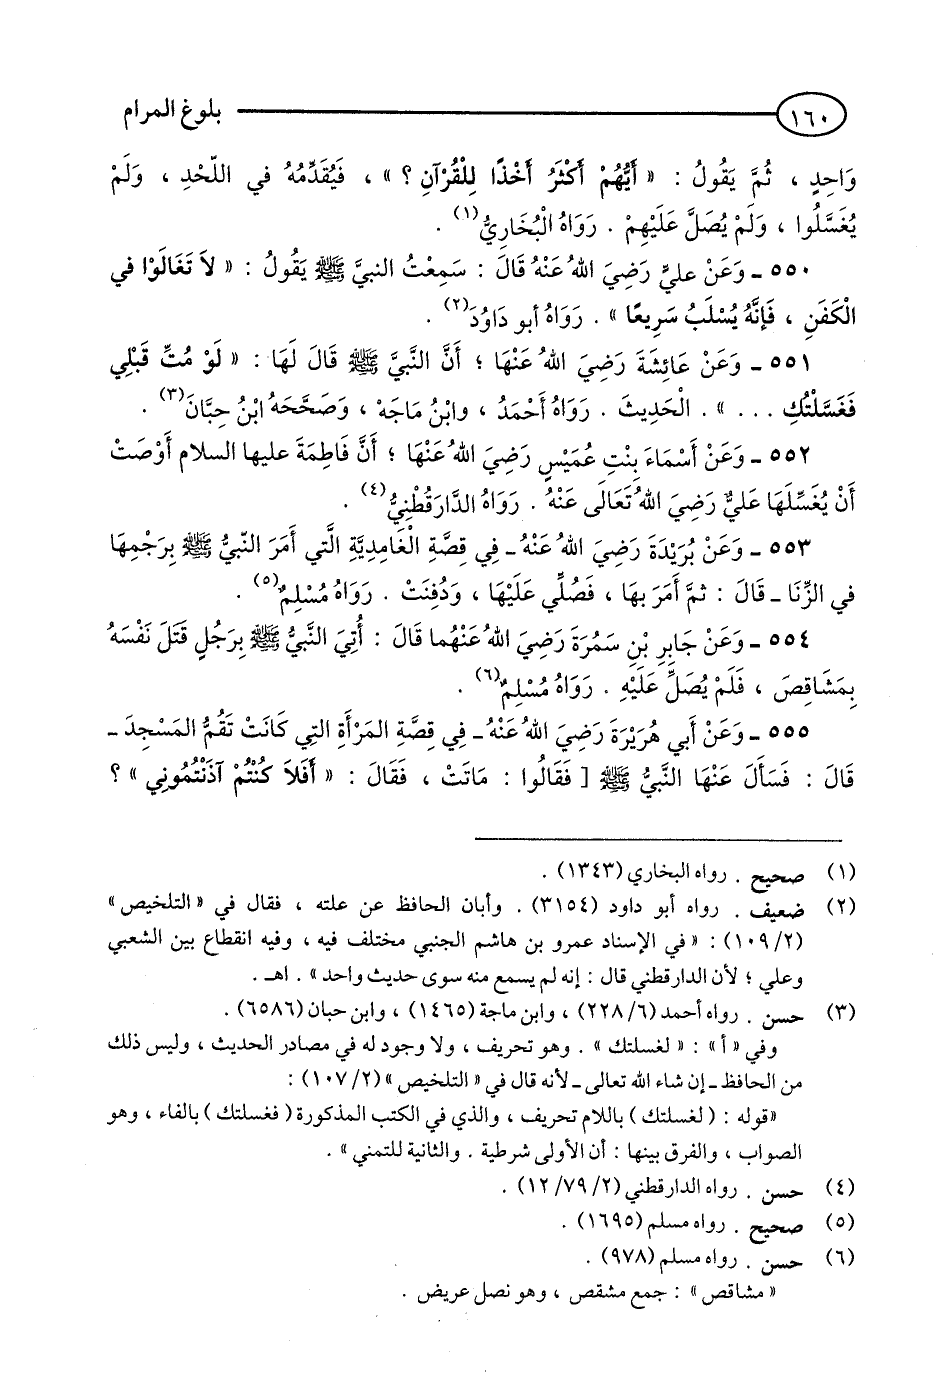 ١٦٠ بلوغ المرام
وَاحِدٍ ، ثُمَّ يَقُولُ : « أَيُّهُمْ أَكْثَرُ أَخْذًا لِلْقُرْآنِ ؟ » ، فَيُقَدِّمُهُ في اللَّحْدِ ، وَلَمْ
يُغَسَّلُوا ، وَلَمْ يُصَلَّ عَلَيْهِمْ . رَوَاهُ الْبُخَارِيُّ(١) .
٥٥٠ ـ وَعَنْ عليٍّ رَضِيَ اللهُ عَنْهُ قَالَ : سَمِعْتُ النبيَّ ﷺ يَقُولُ : « لاَ تَغَالَوْا في
الْكَفَنِ ، فَإِنَّهُ يُسْلَبُ سَرِيعًا » . رَوَاهُ أبو دَاوُدَ(٢) .
٥٥١ ـ وَعَنْ عَائِشَةَ رَضِيَ اللهُ عَنْهَا ؛ أَنَّ النَّبيَّ ﷺ قَالَ لَهَا : « لَوْ مُتِّ قَبْلِي
فَغَسَّلْتُكِ ... » . الْحَدِيثَ . رَوَاهُ أَحْمَدُ ، وابْنُ مَاجَهْ ، وَصَحَّحَهُ ابْنُ حِبَّانَ(٣) .
٥٥٢ ـ وَعَنْ أَسْمَاءَ بِنْتِ عُمَيْسٍ رَضِيَ اللهُ عَنْهَا ؛ أَنَّ فَاطِمَةَ عليها السلام أَوْصَتْ
أَنْ يُغَسِّلَهَا عَليٌّ رَضِيَ اللهُ تَعَالَى عَنْهُ . رَوَاهُ الدَّارَقُطْنِيُّ(٤) .
٥٥٣ ـ وَعَنْ بُرَيْدَةَ رَضِيَ اللهُ عَنْهُ ـ فِي قِصَّةِ الْغَامِدِيَّةِ الَّتي أَمَرَ النَّبيُّ ﷺ بِرَجْمِهَا
في الزِّنَا ـ قَالَ : ثمَّ أَمَرَ بها ، فَصُلِّي عَلَيْهَا ، وَدُفِنَتْ . رَوَاهُ مُسْلِمٌ(٥) .
٥٥٤ ـ وَعَنْ جَابِرِ بْنِ سَمُرَةَ رَضِيَ اللهُ عَنْهُما قَالَ : أُتِيَ النَّبيُّ ﷺ بِرَجُلٍ قَتَلَ نَفْسَهُ
بِمَشَاقِصَ ، فَلَمْ يُصَلِّ عَلَيْهِ . رَوَاهُ مُسْلِمٌ(٦) .
٥٥٥ ـ وَعَنْ أبي هُرَيْرَةَ رَضِيَ اللهُ عَنْهُ ـ فِي قِصَّةِ المَرْأَةِ التِي كَانَتْ تَقُمُّ المَسْجِدَ ـ
قَالَ : فَسَأَلَ عَنْهَا النَّبيُّ ﷺ [ فَقَالُوا : مَاتَتْ ، فَقَالَ : « أَفَلاَ كُنْتُمْ آذَنْتُمُوني » ؟
(١) صحيح . رواه البخاري (١٣٤٣) .
(٢) ضعيف . رواه أبو داود (٣١٥٤) . وأبان الحافظ عن علته ، فقال في « التلخيص »
(١٠٩/٢) : « في الإسناد عمرو بن هاشم الجنبي مختلف فيه ، وفيه انقطاع بين الشعبي
وعلي ؛ لأن الدارقطني قال : إنه لم يسمع منه سوى حديث واحد » . اهـ .
(٣) حسن . رواه أحمد (٢٢٨/٦) ، وابن ماجة (١٤٦٥) ، وابن حبان (٦٥٨٦) .
وفي « أ » : « لغسلتك » . وهو تحريف ، ولا وجود له في مصادر الحديث ، وليس ذلك
من الحافظ ـ إن شاء الله تعالى ـ لأنه قال في « التلخيص » (١٠٧/٢) :
«قوله : ( لغسلتك ) باللام تحريف ، والذي في الكتب المذكورة ( فغسلتك ) بالفاء ، وهو
الصواب ، والفرق بينها : أن الأولى شرطية . والثانية للتمني » .
(٤) حسن . رواه الدارقطني (٢/ ٧٩/ ١٢) .
(٥) صحيح . رواه مسلم (١٦٩٥) .
(٦) حسن . رواه مسلم (٩٧٨) .
« مشاقص » : جمع مشقص ، وهو نصل عريض .